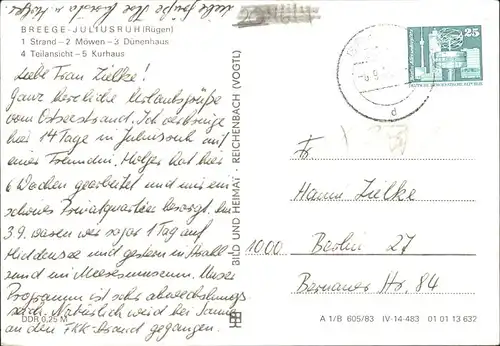 BREEGE-JULIUSRUH (Rügen)
1 Strand – 2 Möwen – 3 Dünenhaus
4 Teilansicht – 5 Kurhaus
Liebe Frau Zielke!
Ganz herzliche Urlaubsgrüße
vom Ostseestrand. Ich verbringe
hier 14 Tage in Juliusruh mit
einer Freundin. Holger hat hier
6 Wochen gearbeitet und uns ein
schönes Privatquartier besorgt. Am
3.9. waren wir sogar 1 Tag auf
Hiddensee und gestern in Stral-
sund im Meeresmuseum. Unser
Programm ist sehr abwechslungs-
reich. Natürlich wird bei Sonne
an den FKK-Strand gegangen.
DDR 0,25 M
BILD UND HEIMAT · REICHENBACH (VOGTL)
25
DEUTSCHE DEMOKRATISCHE REPUBLIK
d
Fr.
Hanni Zielke
1000 Berlin 27
Bernauer Str. 84
A 1/B 605/83 IV-14-483 01 01 13 632